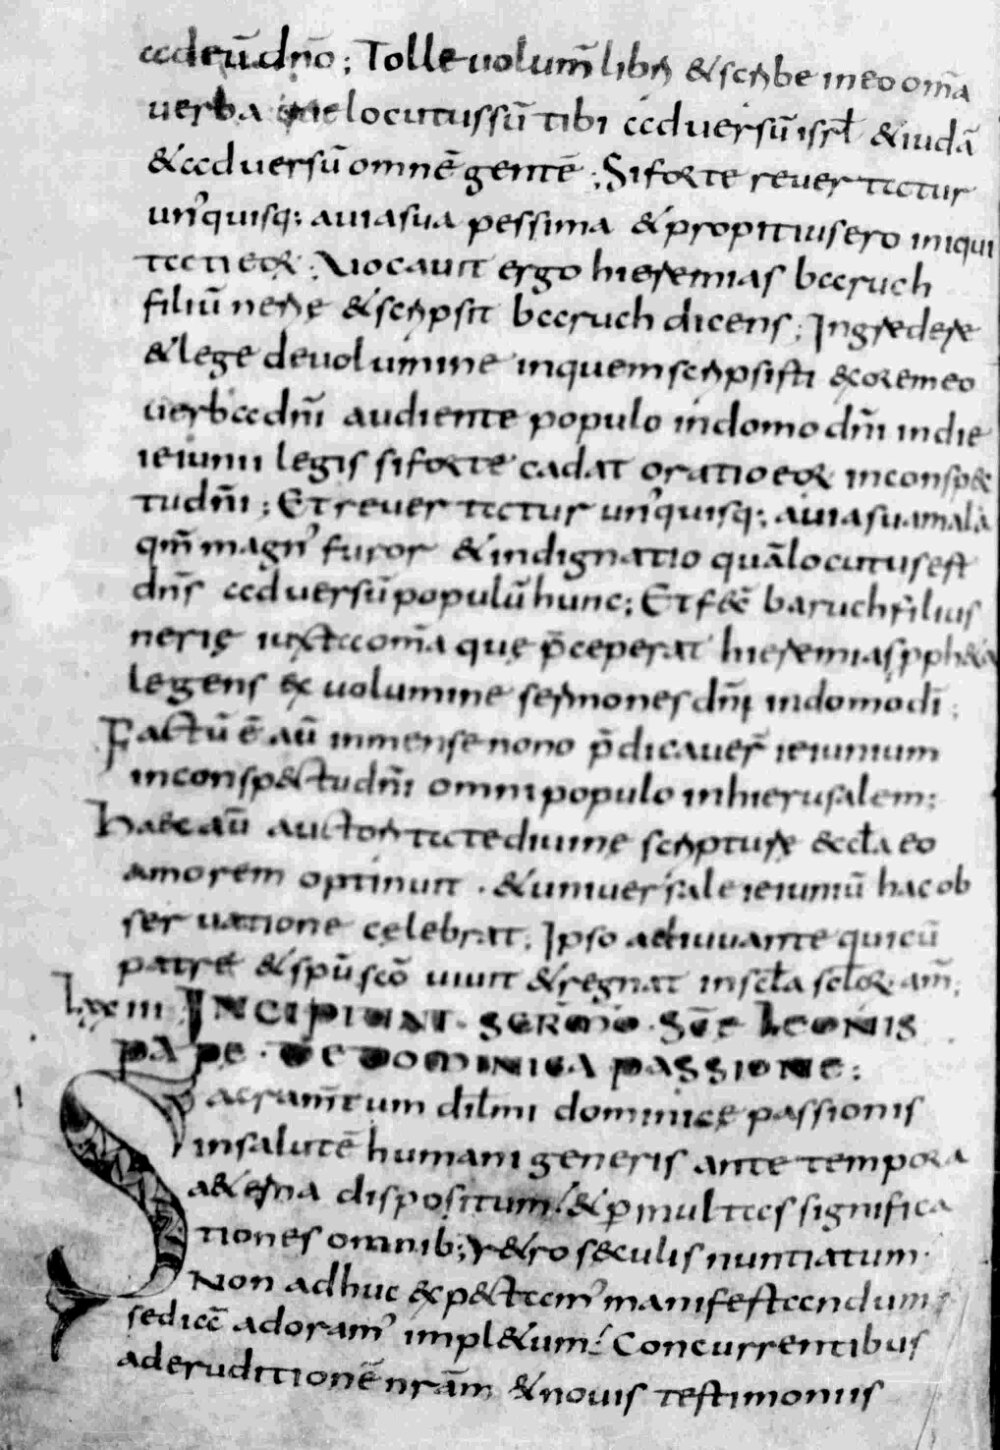 ad eū dn̄o; Tolle uolum̄ libri & scribe in eo om̄a
uerba que locutus sū tibi aduersū isrl̄ & iudā
& aduersū omnē gentē; Si forte reuertatur
un'quisq; a uia sua pessima & propitius ero iniqui
tati eoꝝ; Uocauit ergo hieremias baruch
filiū nerię & scripsit baruch dicens; Ingredere
& lege de uolumine in quem scripsisti ex ore meo
uerba dn̄i audiente populo in domo dn̄i in die
ieiunii legis si forte cadat oratio eoꝝ in conspec
tu dn̄i; Et reuertatur un'quisq; a uia sua mala
qm̄ magn' furor & indignatio quā locutus est
dn̄s aduersū populū hunc; Et fec̄ baruch filius
nerię iuxta om̄a quę p̄ceperat hieremias ppheta
legens ex uolumine sermones dn̄i in domo dn̄i;
Factū ē aū in mense nono p̄dicauer̄ ieiunium
in conspectu dn̄i omni populo in hierusalem;
Haec aū auctoritate diuine scripturę & ccl̄a eo
amorem optinuit . & uniuersale ieiuniū hac ob
seruatione celebrat; Ipso adiuuante qui cū
patre & spū scō uiuit & regnat in scl̄a scl̄oꝝ am̄;
Lxxiii INCIPIUNT . SERMO . SCE LEONIS
PAPE . DE DOMINICA PASSIONE:
Sacram̄tum dil̄mi dominicę passionis
in salutē humani generis ante tempora
a&erna dispositum & ꝑ multas significa
tiones omnib; r&ro seculis nuntiatum.
Non adhuc exp&tam' manifestandum
sed iā adoram' impl&um. Concurrentibus
ad eruditionē nr̄am & nouis testimoniis